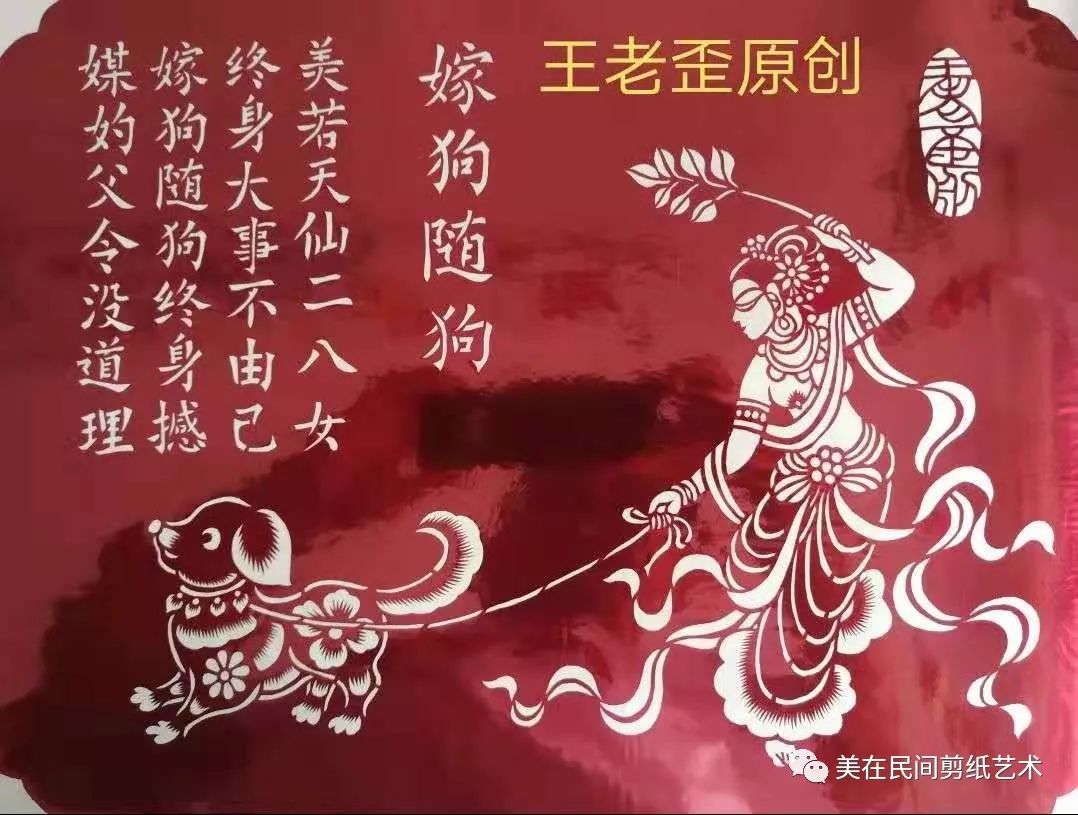 王老歪原创
嫁狗随狗
美若天仙二八女
终身大事不由己
嫁狗随狗终身撼
媒妁父令没道理
美在民间剪纸艺术